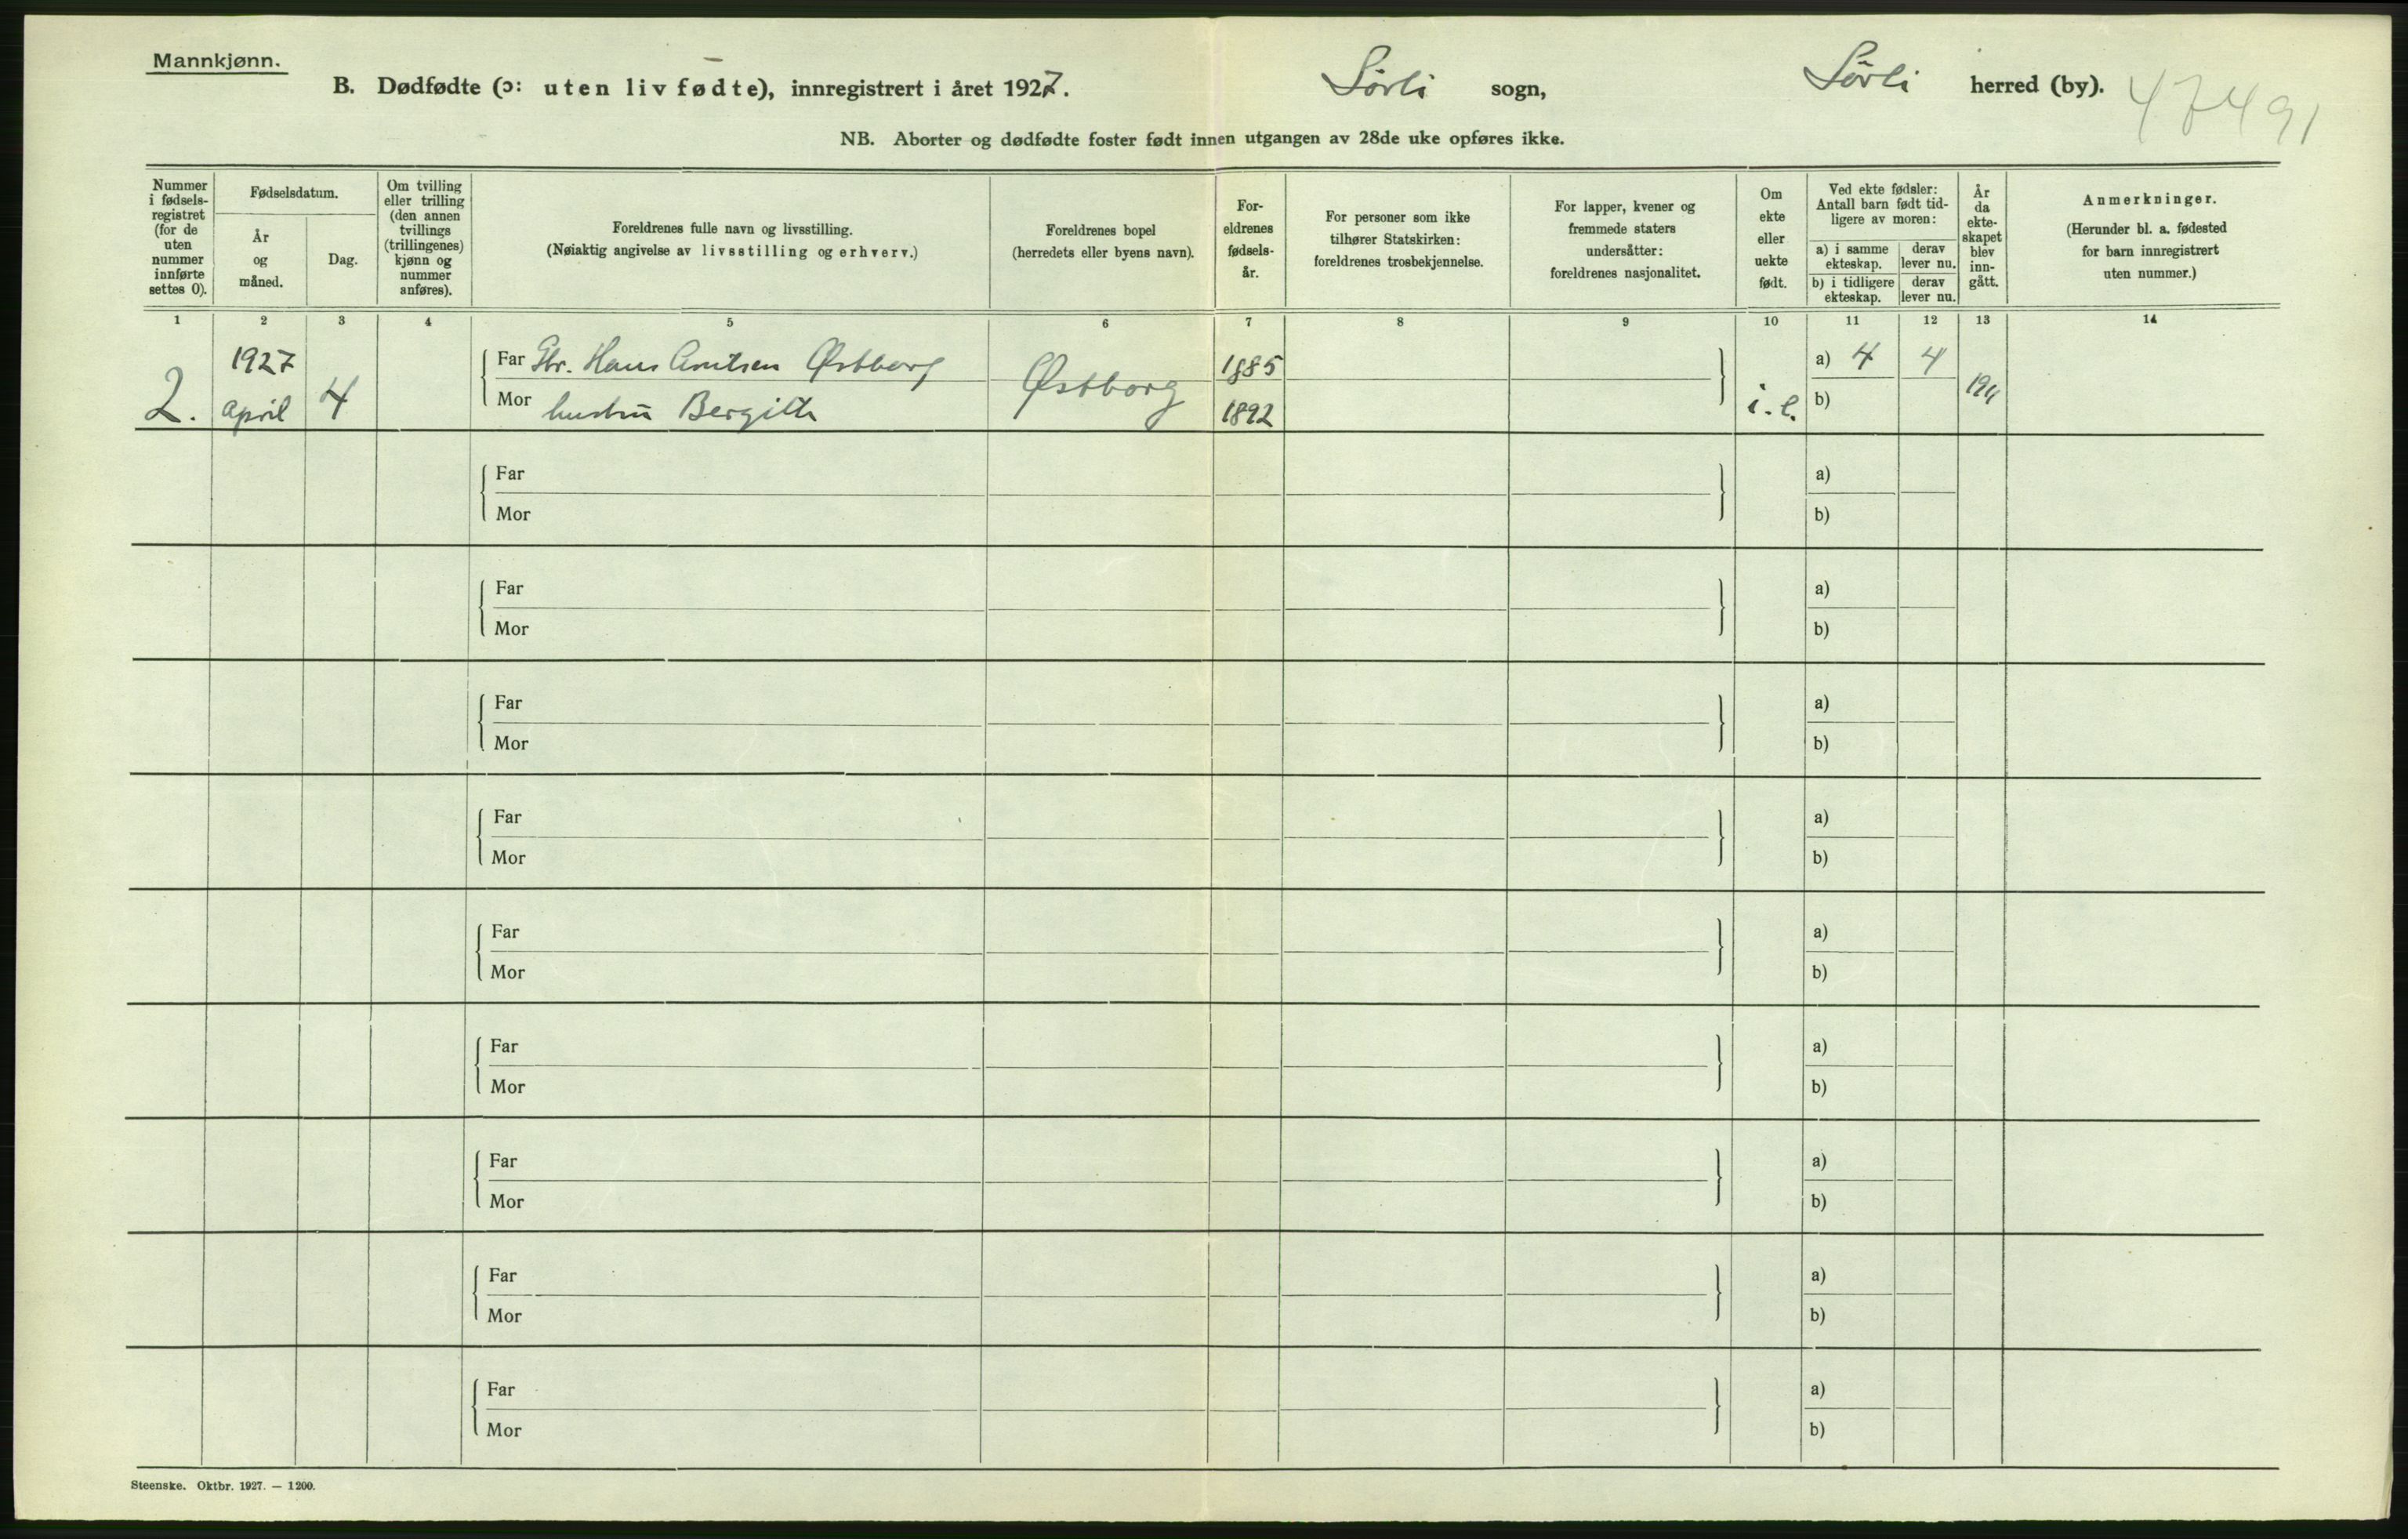 Mannkjønn.
B. Dødfødte (ɔ: uten liv fødte), innregistrert i året 1927. Sörli sogn, Sörli herred (by). 47491
NB. Aborter og dødfødte foster født innen utgangen av 28de uke opføres ikke.
Nummer i fødsels-registret (for de uten nummer innførte settes 0).
Fødselsdatum.
År og måned.
Dag.
Om tvilling eller trilling (den annen tvillings (trillingenes) kjønn og nummer anføres).
Foreldrenes fulle navn og livsstilling.
(Nøiaktig angivelse av livsstilling og erhverv.)
Foreldrenes bopel
(herredets eller byens navn).
For-eldrenes fødsels-år.
For personer som ikke tilhører Statskirken: foreldrenes trosbekjennelse.
For lapper, kvener og fremmede staters undersåtter: foreldrenes nasjonalitet.
Om ekte eller uekte født.
Ved ekte fødsler: Antall barn født tid-ligere av moren:
a) i samme ekteskap.
derav lever nu.
b) i tidligere ekteskap.
derav lever nu.
År da ekte-skapet blev inn-gått.
Anmerkninger.
(Herunder bl. a. fødested for barn innregistrert uten nummer.)
1 2 3 4 5 6 7 8 9 10 11 12 13 14
2. 1927 april 4
Far Gbr. Hans Arntsen Østborg Østborg 1885 i.e. a) 4 4 1911
Mor hustru Bergitte 1892 b)
Far a)
Mor b)
Far a)
Mor b)
Far a)
Mor b)
Far a)
Mor b)
Far a)
Mor b)
Far a)
Mor b)
Far a)
Mor b)
Far a)
Mor b)
Far a)
Mor b)
Steenske. Oktbr. 1927. — 1200.